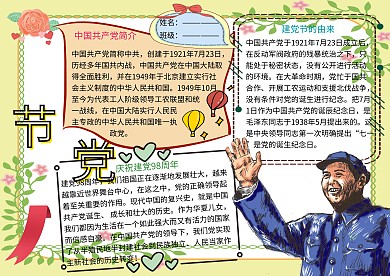 姓名:
班级:
中国共产党简介
中国共产党简称中共,创建于1921年7月23日,
历经多年国共内战,中国共产党在中国大陆取
得全面胜利,并在1949年于北京建立实行社
会主义制度的中华人民共和国。1949年10月
至今为代表工人阶级领导工农联盟和统
一战线,在中国大陆实行人民民
主专政的中华人民共和国唯一执
政党。
建党节的由来
中国共产党于1921年7月23日成立后,
在反动军阀政府的残暴统治之下,只
能处于秘密状态,没有公开进行活动
的环境。在大革命时期,党忙于国共
合作、开展工农运动和支援北伐战争,
没有条件对党的诞生进行纪念。把7月
1日作为中国共产党的诞辰纪念日,是
毛泽东同志于1938年5月提出来的。这
是中央领导同志第一次明确提出“七一”
是党的诞生纪念日。
节
党
庆祝建党98周年
建党98周年,我们祖国正在逐渐地发展壮大,越来
越靠近世界舞台中心,在这之中,党的正确领导起
着至关重要的作用。现代中国的复兴史,就是中国
共产党诞生、成长和壮大的历史。作为华夏儿女,
我们都因为生活在一个如此强大而又有活力的国家
而倍感自豪。在中国共产党的领导下,我们党实现
了从半殖民地半封建社会到民族独立、人民当家作
主新社会的历史转变!